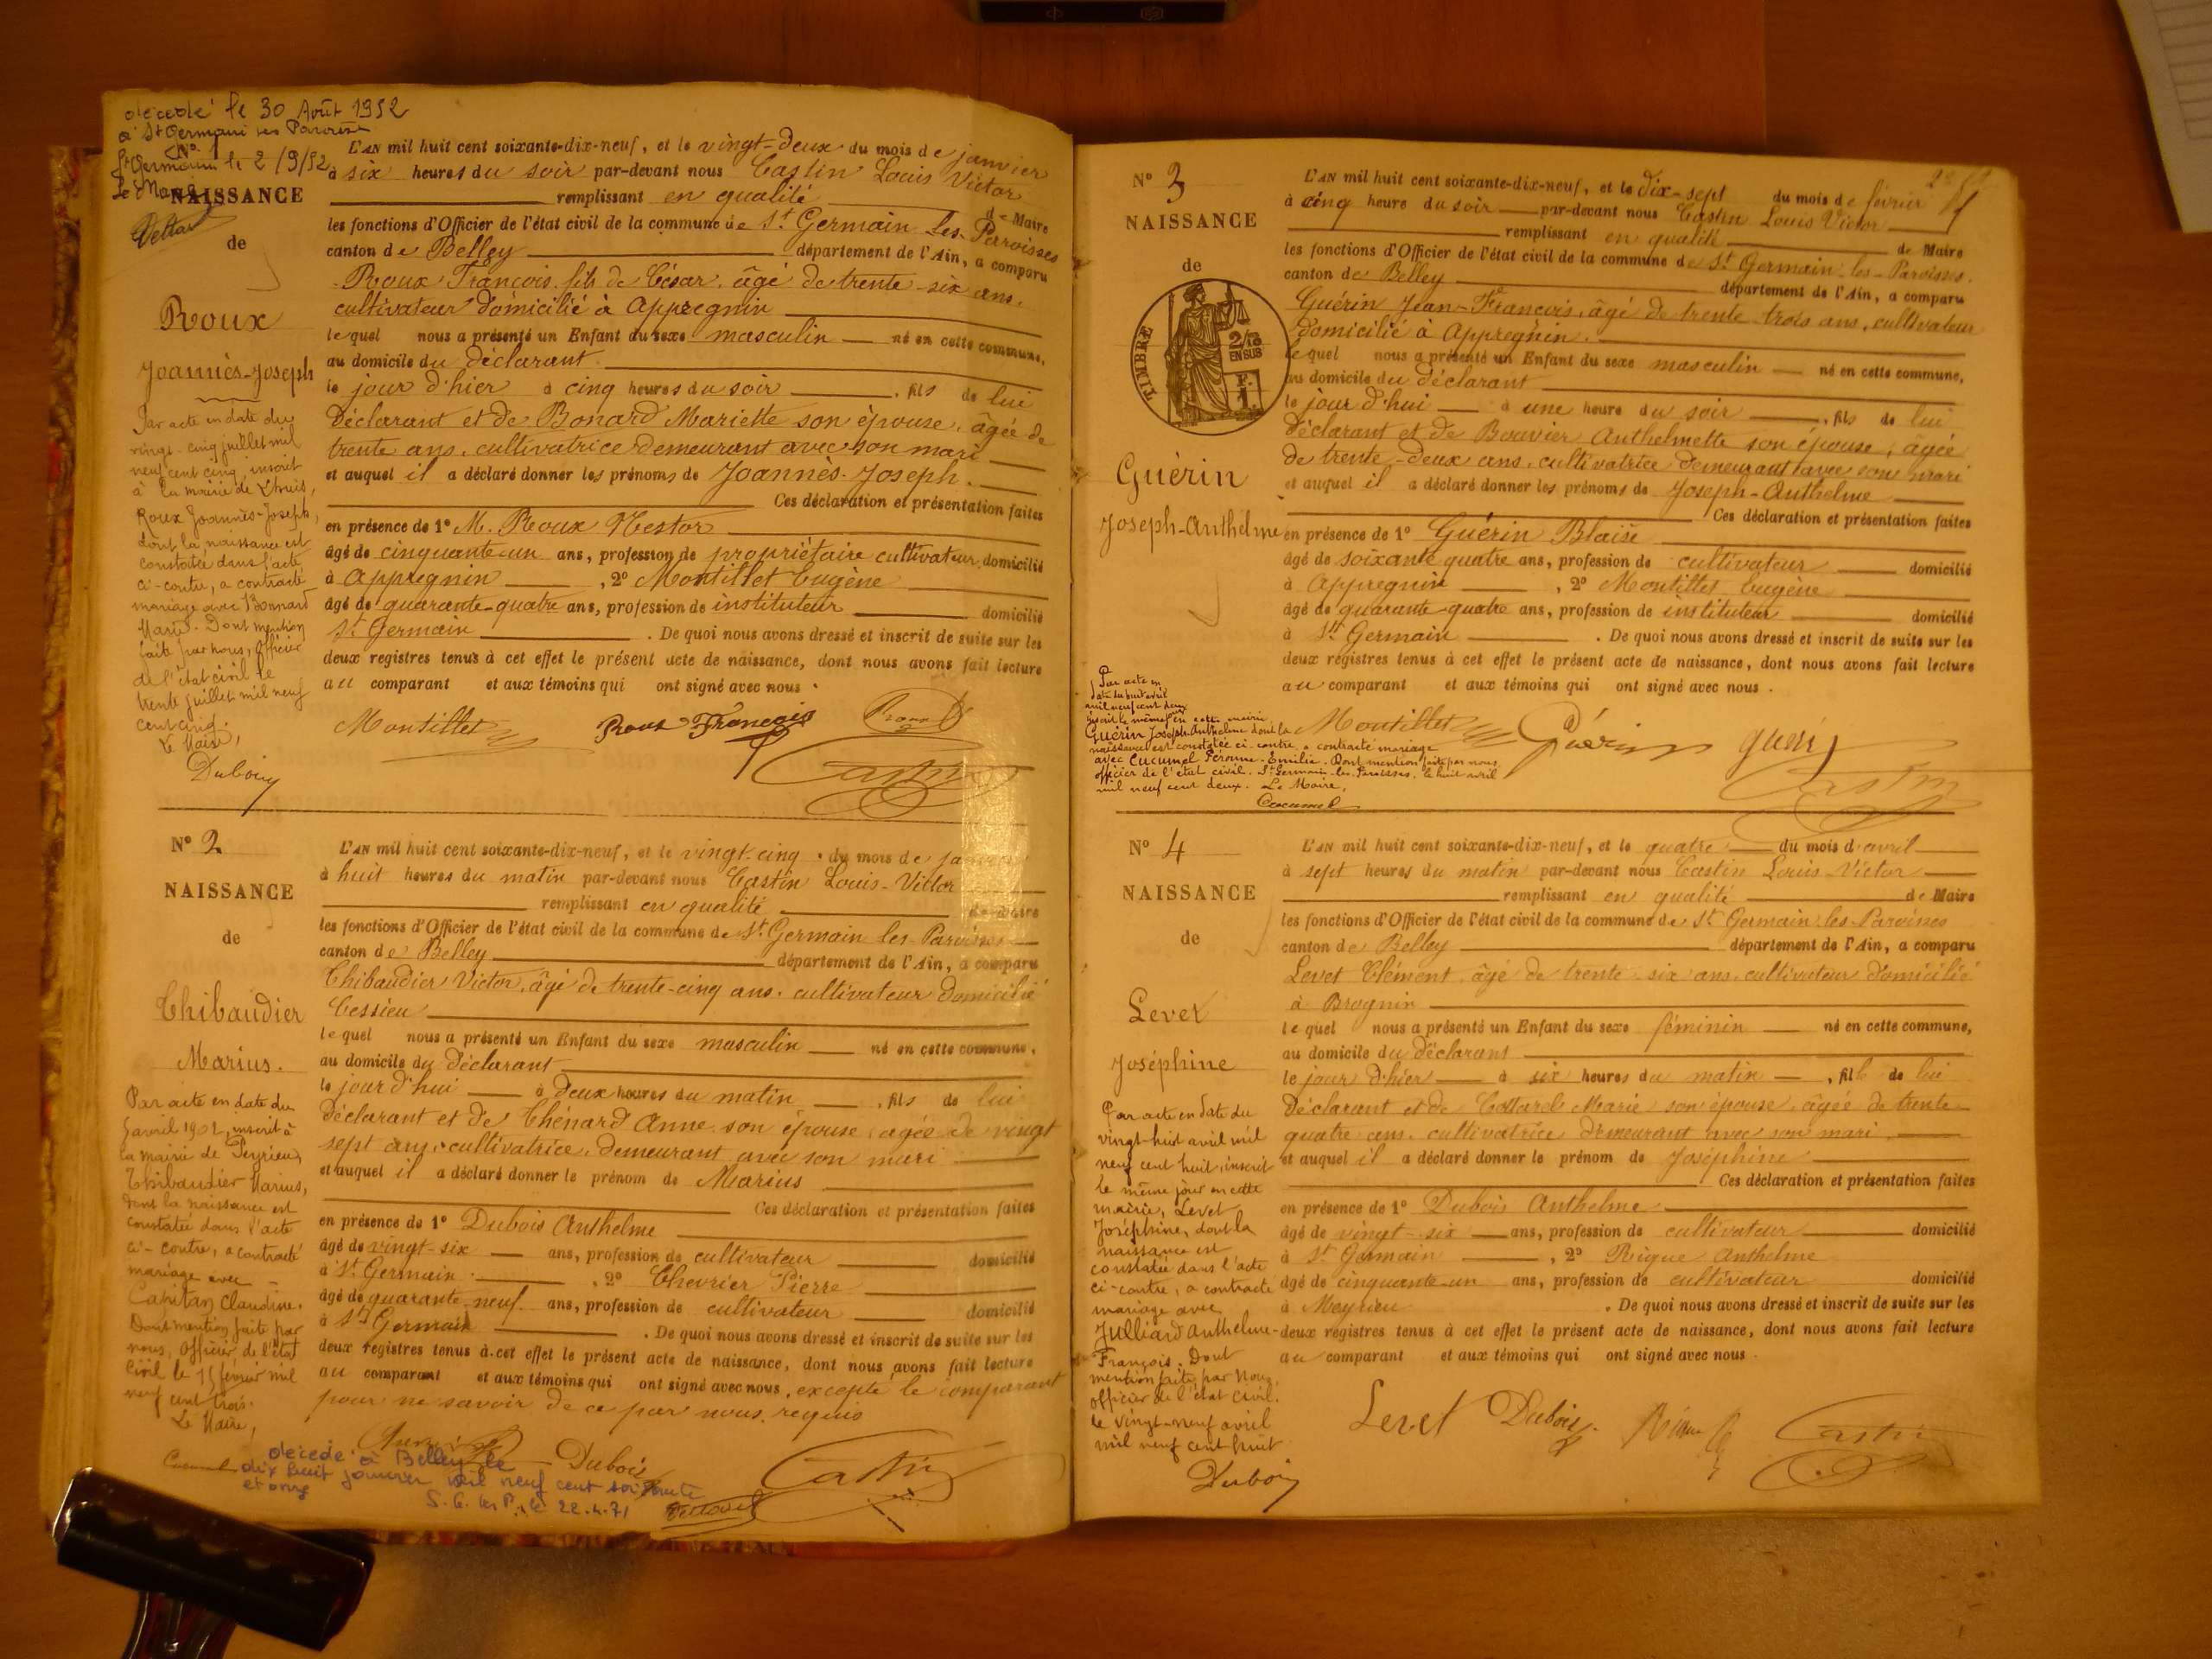 décédé le 30 Août 1952
à St Germain les Paroisses
N° 1
St Germain le 2/9/52
Le Maire
NAISSANCE
de
Roux
Joannès-Joseph
Par acte en date du
vingt-cinq juillet mil
neuf cent cinq, inscrit
à la mairie de
Roux Joannès-Joseph,
dont la naissance est
constatée dans l'acte
ci-contre, a contracté
mariage avec Bonnard
Marie. Dont mention
faite par nous, Officier
de l'état civil le
trente juillet mil neuf
cent cinq.
Le Maire,
Dubois
L'AN mil huit cent soixante-dix-neuf, et le vingt-deux du mois de janvier
à six heures du soir par-devant nous Castin Louis Victor
remplissant en qualité de Maire
les fonctions d'Officier de l'état civil de la commune de St Germain-les-Parroisses
canton de Belley département de l'Ain, a comparu
Roux François fils de César, âgé de trente-six ans,
cultivateur domicilié à Appregnin
lequel nous a présenté un Enfant du sexe masculin né en cette commune,
au domicile du déclarant
le jour d'hier à cinq heures du soir, fils de lui
déclarant et de Bonard Mariette son épouse, âgée de
trente ans, cultivatrice demeurant avec son mari
et auquel il a déclaré donner les prénoms de Joannès-Joseph.
Ces déclaration et présentation faites
en présence de 1° M. Roux Nestor
âgé de cinquante-un ans, profession de propriétaire cultivateur domicilié
à Appregnin, 2° Montillet Eugène
âgé de quarante-quatre ans, profession de instituteur domicilié
St Germain. De quoi nous avons dressé et inscrit de suite sur les
deux registres tenus à cet effet le présent acte de naissance, dont nous avons fait lecture
au comparant et aux témoins qui ont signé avec nous.
Montillet Roux François Roux
Castin
N° 2
NAISSANCE
de
Thibaudier
Marius.
Par acte en date du
5 avril 1902, inscrit à
la mairie de Peyrieu,
Thibaudier Marius,
dont la naissance est
constatée dans l'acte
ci-contre, a contracté
mariage avec
Capitan Claudine.
Dont mention faite par
nous, Officier de l'état
civil le 15 février mil
neuf cent trois.
Le Maire,
Cucumel
L'AN mil huit cent soixante-dix-neuf, et le vingt-cinq du mois de janvier
à huit heures du matin par-devant nous Castin Louis-Victor
remplissant en qualité de Maire
les fonctions d'Officier de l'état civil de la commune de St Germain les Paroisses
canton de Belley département de l'Ain, a comparu
Thibaudier Victor, âgé de trente-cinq ans, cultivateur domicilié
Cessieu
lequel nous a présenté un Enfant du sexe masculin né en cette commune,
au domicile du déclarant
le jour d'hui à deux heures du matin, fils de lui
déclarant et de Thénard Anne son épouse, agée de vingt
sept ans, cultivatrice, demeurant avec son mari
et auquel il a déclaré donner le prénom de Marius
Ces déclaration et présentation faites
en présence de 1° Dubois Anthelme
âgé de vingt-six ans, profession de cultivateur domicilié
à St Germain, 2° Chevrier Pierre
âgé de quarante-neuf ans, profession de cultivateur domicilié
à St Germain. De quoi nous avons dressé et inscrit de suite sur les
deux registres tenus à cet effet le présent acte de naissance, dont nous avons fait lecture
au comparant et aux témoins qui ont signé avec nous, excepté le comparant
pour ne savoir de ce par nous requis
Dubois Castin
décédé à Belley le
dix huit janvier mil neuf cent soixante
et onze
S. G. les P. le 22.4.71
N° 3
NAISSANCE
de
TIMBRE
2/10
EN SUS
Guérin
Joseph-Anthelme
L'AN mil huit cent soixante-dix-neuf, et le dix-sept du mois de février
à cinq heure du soir par-devant nous Castin Louis Victor
remplissant en qualité de Maire
les fonctions d'Officier de l'état civil de la commune de St Germain-les-Paroisses.
canton de Belley département de l'Ain, a comparu
Guérin Jean-François, âgé de trente-trois ans, cultivateur
domicilié à Appregnin.
lequel nous a présenté un Enfant du sexe masculin né en cette commune,
au domicile du déclarant
le jour d'hui à une heure du soir, fils de lui
déclarant et de Bouvier Anthelmette son épouse, âgée
de trente-deux ans, cultivatrice demeurant avec son mari
et auquel il a déclaré donner les prénoms de Joseph-Anthelme
Ces déclaration et présentation faites
en présence de 1° Guérin Blaise
âgé de soixante quatre ans, profession de cultivateur domicilié
à Appregnin, 2° Montillet Eugène
âgé de quarante-quatre ans, profession de instituteur domicilié
à St Germain. De quoi nous avons dressé et inscrit de suite sur les
deux registres tenus à cet effet le présent acte de naissance, dont nous avons fait lecture
au comparant et aux témoins qui ont signé avec nous.
Par acte en
date du huit avril
mil neuf cent deux
inscrit le même jour en cette mairie
Guérin Joseph-Anthelme dont la
naissance est constatée ci-contre, a contracté mariage
avec Cucumel Péronne-Emilie. Dont mention faite par nous
officier de l'état civil. St Germain-les-Paroisses, le huit avril
mil neuf cent deux. Le Maire,
Cucumel
Montillet Guérin
Castin
N° 4
NAISSANCE
de
Levet
Joséphine
Par acte en date du
vingt-huit avril mil
neuf cent huit, inscrit
le même jour en cette
mairie, Levet
Joséphine, dont la
naissance est
constatée dans l'acte
ci-contre, a contracté
mariage avec
Julliard Anthelme-
François. Dont
mention faite par Nous,
officier de l'état civil.
le vingt-neuf avril
mil neuf cent huit
Dubois
L'AN mil huit cent soixante-dix-neuf, et le quatre du mois d'avril
à sept heures du matin par-devant nous Castin Louis-Victor
remplissant en qualité de Maire
les fonctions d'Officier de l'état civil de la commune de St Germain-les-Paroisses
canton de Belley département de l'Ain, a comparu
Levet Clément, âgé de trente-six ans, cultivateur domicilié
à Brognin
lequel nous a présenté un Enfant du sexe féminin né en cette commune,
au domicile du déclarant
le jour d'hier à six heures du matin, fille de lui
déclarant et de Collard Marie son épouse, âgée de trente-
quatre ans, cultivatrice demeurant avec son mari
et auquel il a déclaré donner le prénom de Joséphine
Ces déclaration et présentation faites
en présence de 1° Dubois Anthelme
âgé de vingt-six ans, profession de cultivateur domicilié
à St Germain, 2° Rigue Anthelme
âgé de cinquante-un ans, profession de cultivateur domicilié
à Meyrieu. De quoi nous avons dressé et inscrit de suite sur les
deux registres tenus à cet effet le présent acte de naissance, dont nous avons fait lecture
au comparant et aux témoins qui ont signé avec nous.
Levet Dubois Castin